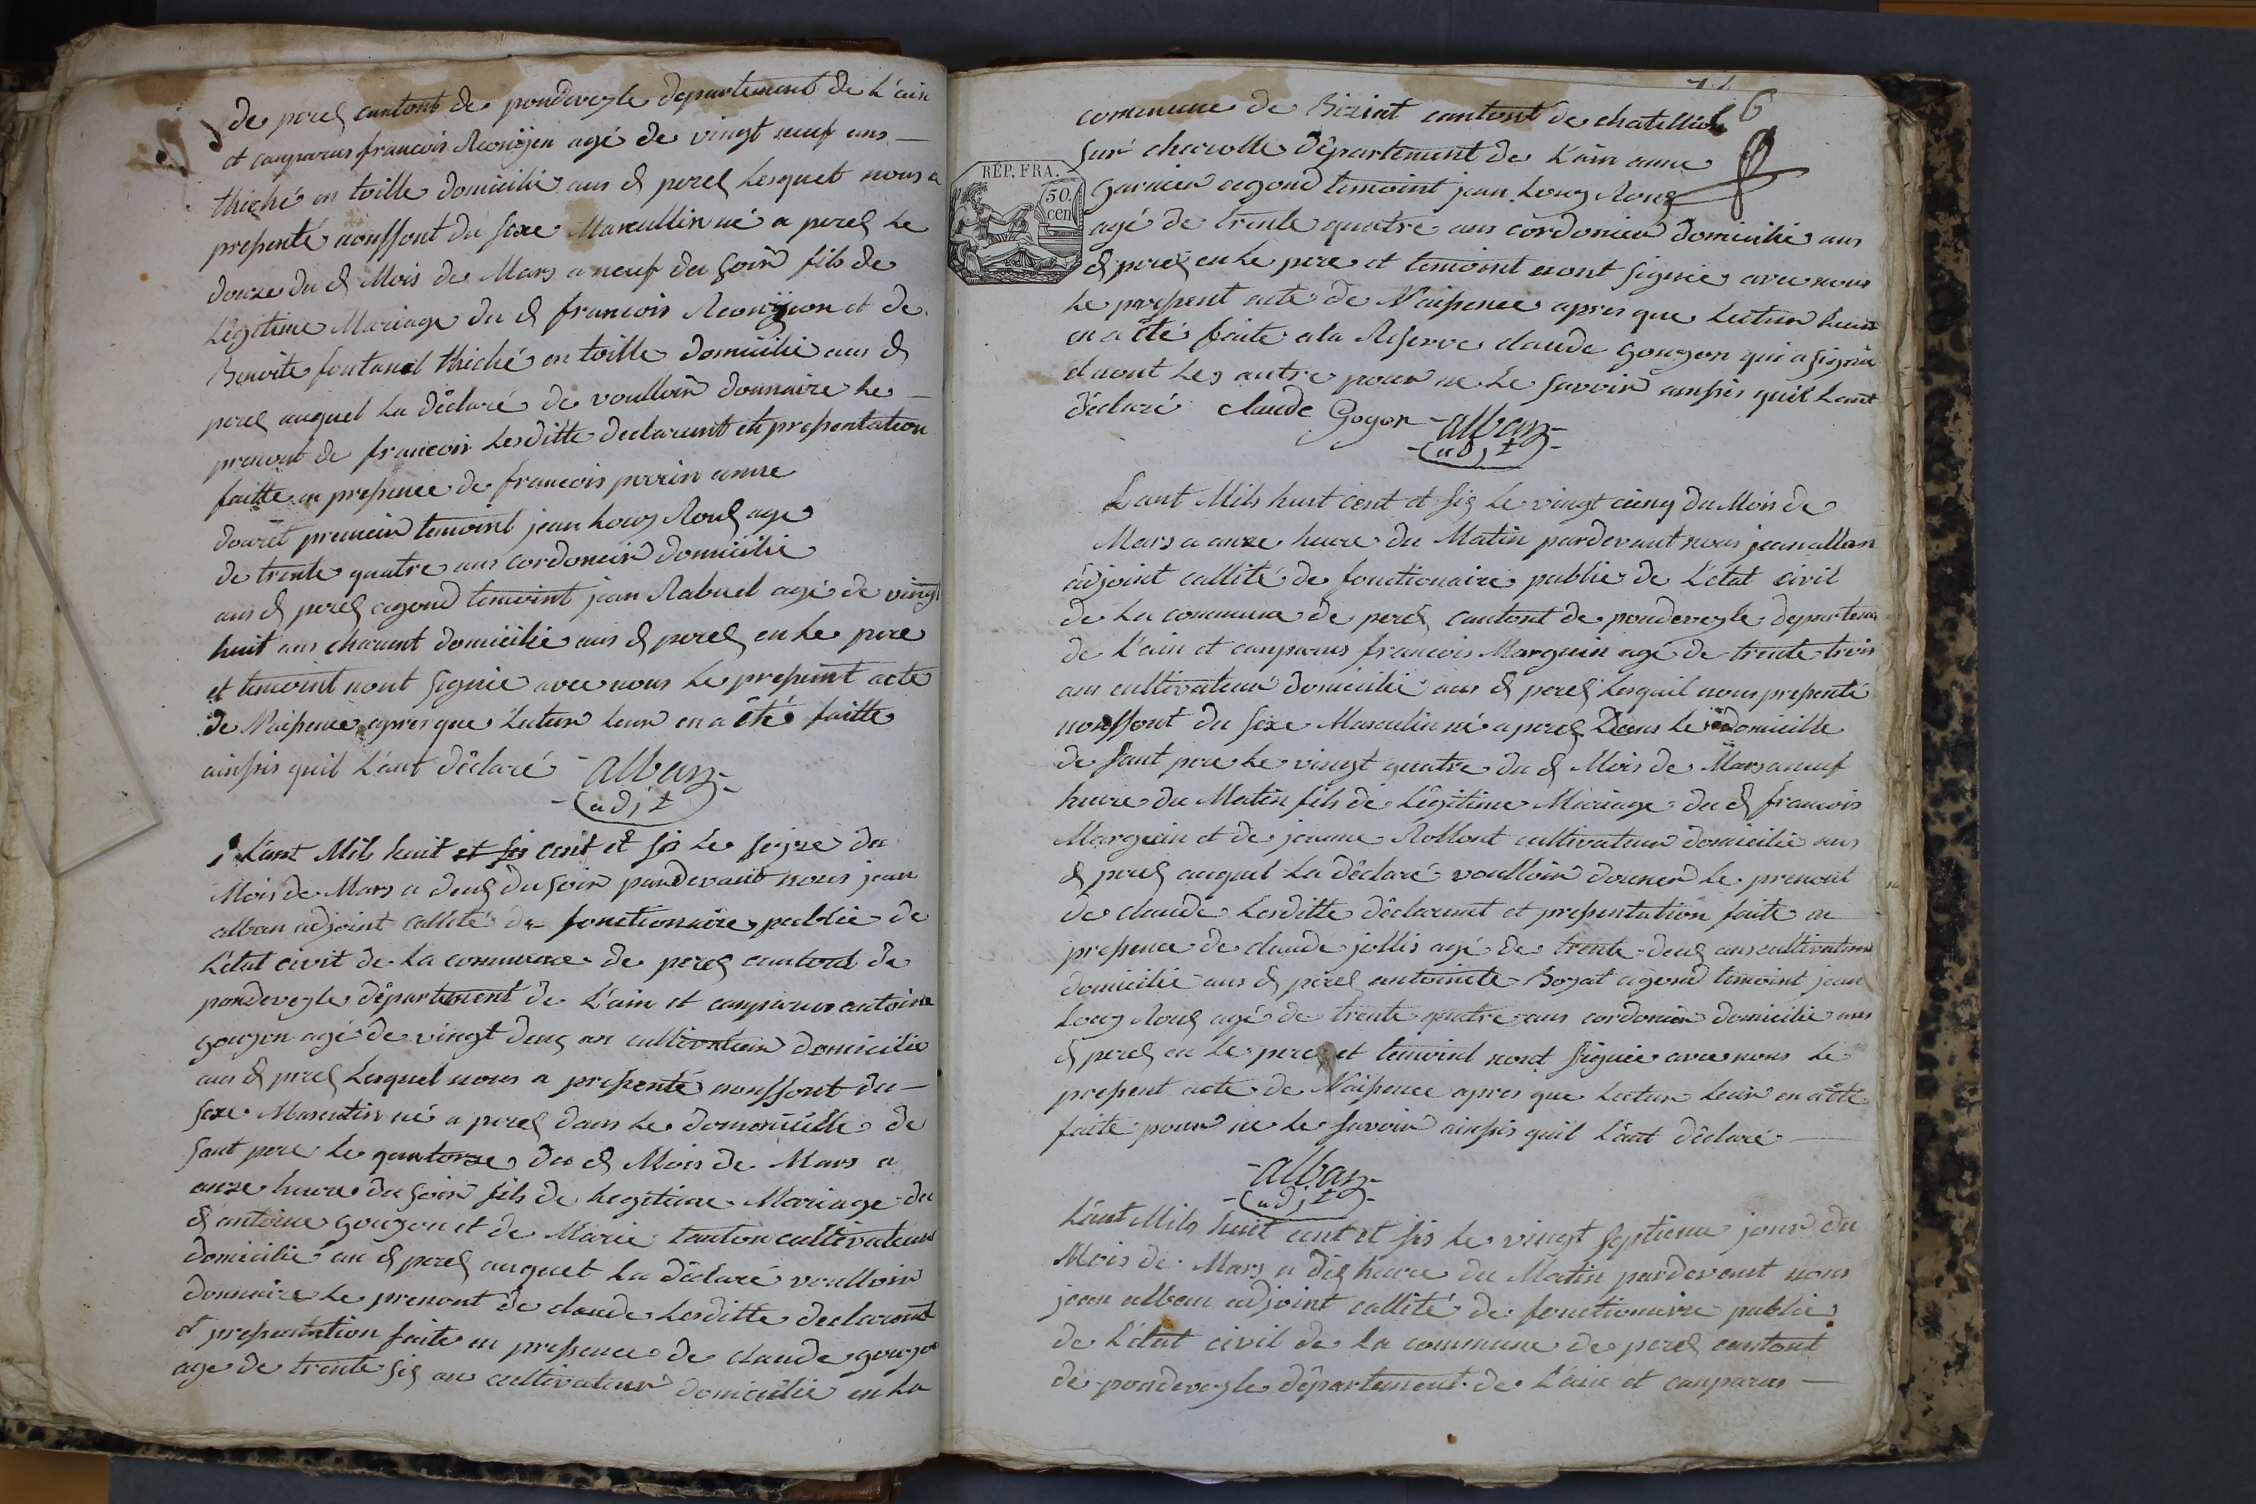 de perex cantont de pondeveyle departement de L'ain
et canparus francois Reonÿjen agé de vingt neuf ans —
thiché en toille domicilié aus d perex Lesquel nous a
presenté nonffont du sexe Marcullin né a perex Le
douze du d Mois de Mars a neuf du soir fils de
Legitime Mariage du d francois Reonÿjeon et de
Benoite fontanel thiché en toille domicilié aus d
perex auquel La déclaré de voulloir donnaire Le —
prenont de francoir Lesditte declarant et presentation
faitte en presence de francois perrin anne
douret premier temoint jean Louy Roux age
de trente quatre ans cordonnier domicilie
aus d perex cegond temoint jean Rabuel agé de vingt
huit ans charant domicilié aus d perex en Le pere
et temoint nont signie avec nous Le present acte
de Naisence apres que Lecture Leur en a été faitte
ainsis quil L'ant déclaré - alban -
- adjt -
L'ant Mils huit et six cent et six Le seize du
Mois de Mars a deux du soir pardevant nous jean
alban adjoint callité de fonctionaire public de
L'état civil de La commune de perex cantont de
pondeveyle département de L'ain et canparus antoine
goujon agé de vingt deux an cultivateur domicilié
aus d perex Lesquel nous a presenté nonffont du —
sexe Masculin né a perex dans Le domoniciLle de
sant pere Le quatorze du d Mois de Mars a
onze heure du soir fils de Legitime Mariage du
d antoine gouzon et de Marie tanton cultivateur
domicilié au d perex auquel La déclaré voulloir
donnaire Le prenont de claude Lesditte declarant
et presentation faite en presence de claude gouzon
age de trente six an cultivateur domicilié en La
6
commune de Biziat cantont de chatellion
sur charolle département de L'ain anne
garnier cegond temoint jean Louy Roux
REP. FRA.
50.
cen
agé de trente quatre ans cordonier domicilié aus
d perex en Le pere et temoint nont signie avec nous
Le present acte de Naisence apres que Lecture Leur
en a été faite a la Reserve claude gouzon qui a signie
et nont Les autre pour ne Le savoir ainsis quil Lant
déclaré claude Gogon - alban -
- adjt -
L'ant Mils huit cent et six Le vingt cinq du Mois de
Mars a onze heure du Matin pardevant nous jean alban
adjoint callité de fonctionaire public de L'état civil
de La commune de perex cantont de pondeveyle departement
de L'ain et canparus francois Marguin agé de trente trois
ans cultivateur domicilié aus d perex Lesquil nous presenté
nonffont du sexe Masculin né a perex Dans Le domicille
de sant pere Le vingt quatre du d Mois de Mars a neuf
heure du Matin fils de Légitime Mariage du d francois
Marguin et de jeanne Rollont cultivateur domicilié aus
d perex auquel La déclaré voulloir donner Le prenont
de claude Lesditte déclarant et presentation faite en
presence de claude jollis agé de trente deux ans cultivateur
domicilié aus d perex antoinete Boyat cegond temoint jean
Louy Roux agé de trente quatre ans cordonier domicilié aus
d perex en Le pere et temoint nont signie avec nous Le
present acte de Naisence apres que Lecture Leur en a été
faite pour ne Le savoir ainsis quil L'ant déclaré —
- alban -
- adjt -
L'ant Mils huit cent et six Le vingt septieme jour du
Mois de Mars a dix heure du Matin pardevant nous
jean alban adjoint callité de fonctionaire public
de L'état civil de La commune de perex cantont
de pondeveyle département de L'ain et canparus —